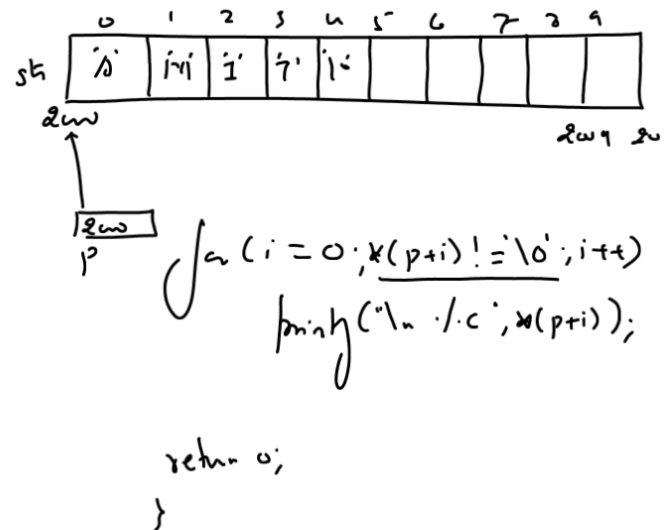 0 1 2 3 4 5 6 7 8 9
str 's'
2000 2009
2000
p
for (i = 0; *(p+i) != '\0'; i++)
printf("\n %c", *(p+i));
return 0;
}